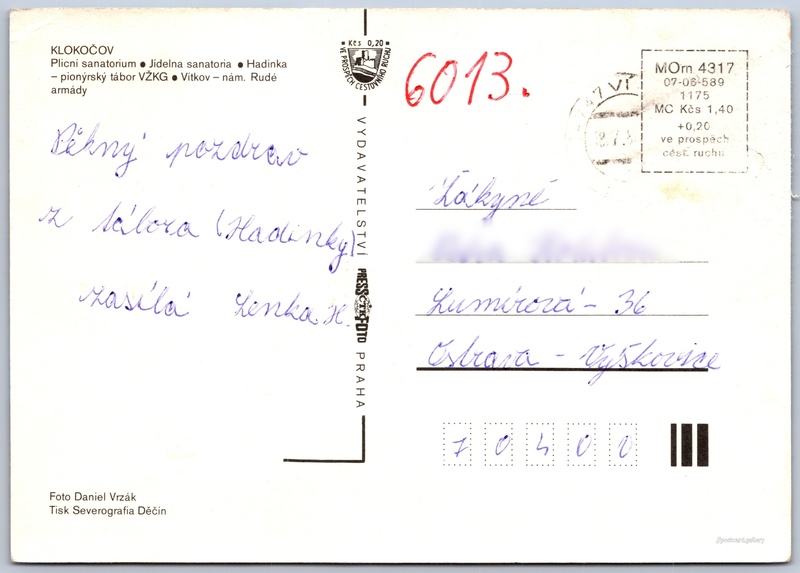 KLOKOČOV
Plicní sanatorium ● Jídelna sanatoria ● Hadinka
– pionýrský tábor VŽKG ● Vítkov – nám. Rudé
armády
Pěkný pozdrav
z tábora (Hadinky)
zasílá Lenka H.
Foto Daniel Vrzák
Tisk Severografia Děčín
Kčs 0,20
VE PROSPĚCH CESTOVNÍHO RUCHU
VYDAVATELSTVÍ
PRESSFOTO
PRAHA
6013.
MOrn 4317
07-06-589
1175
MC Kčs 1,40
+0,20
ve prospěch
cest. ruchu
Žákyně
Lumírová – 36
Ostrava – Výškovice
70400
//postcard.gallery